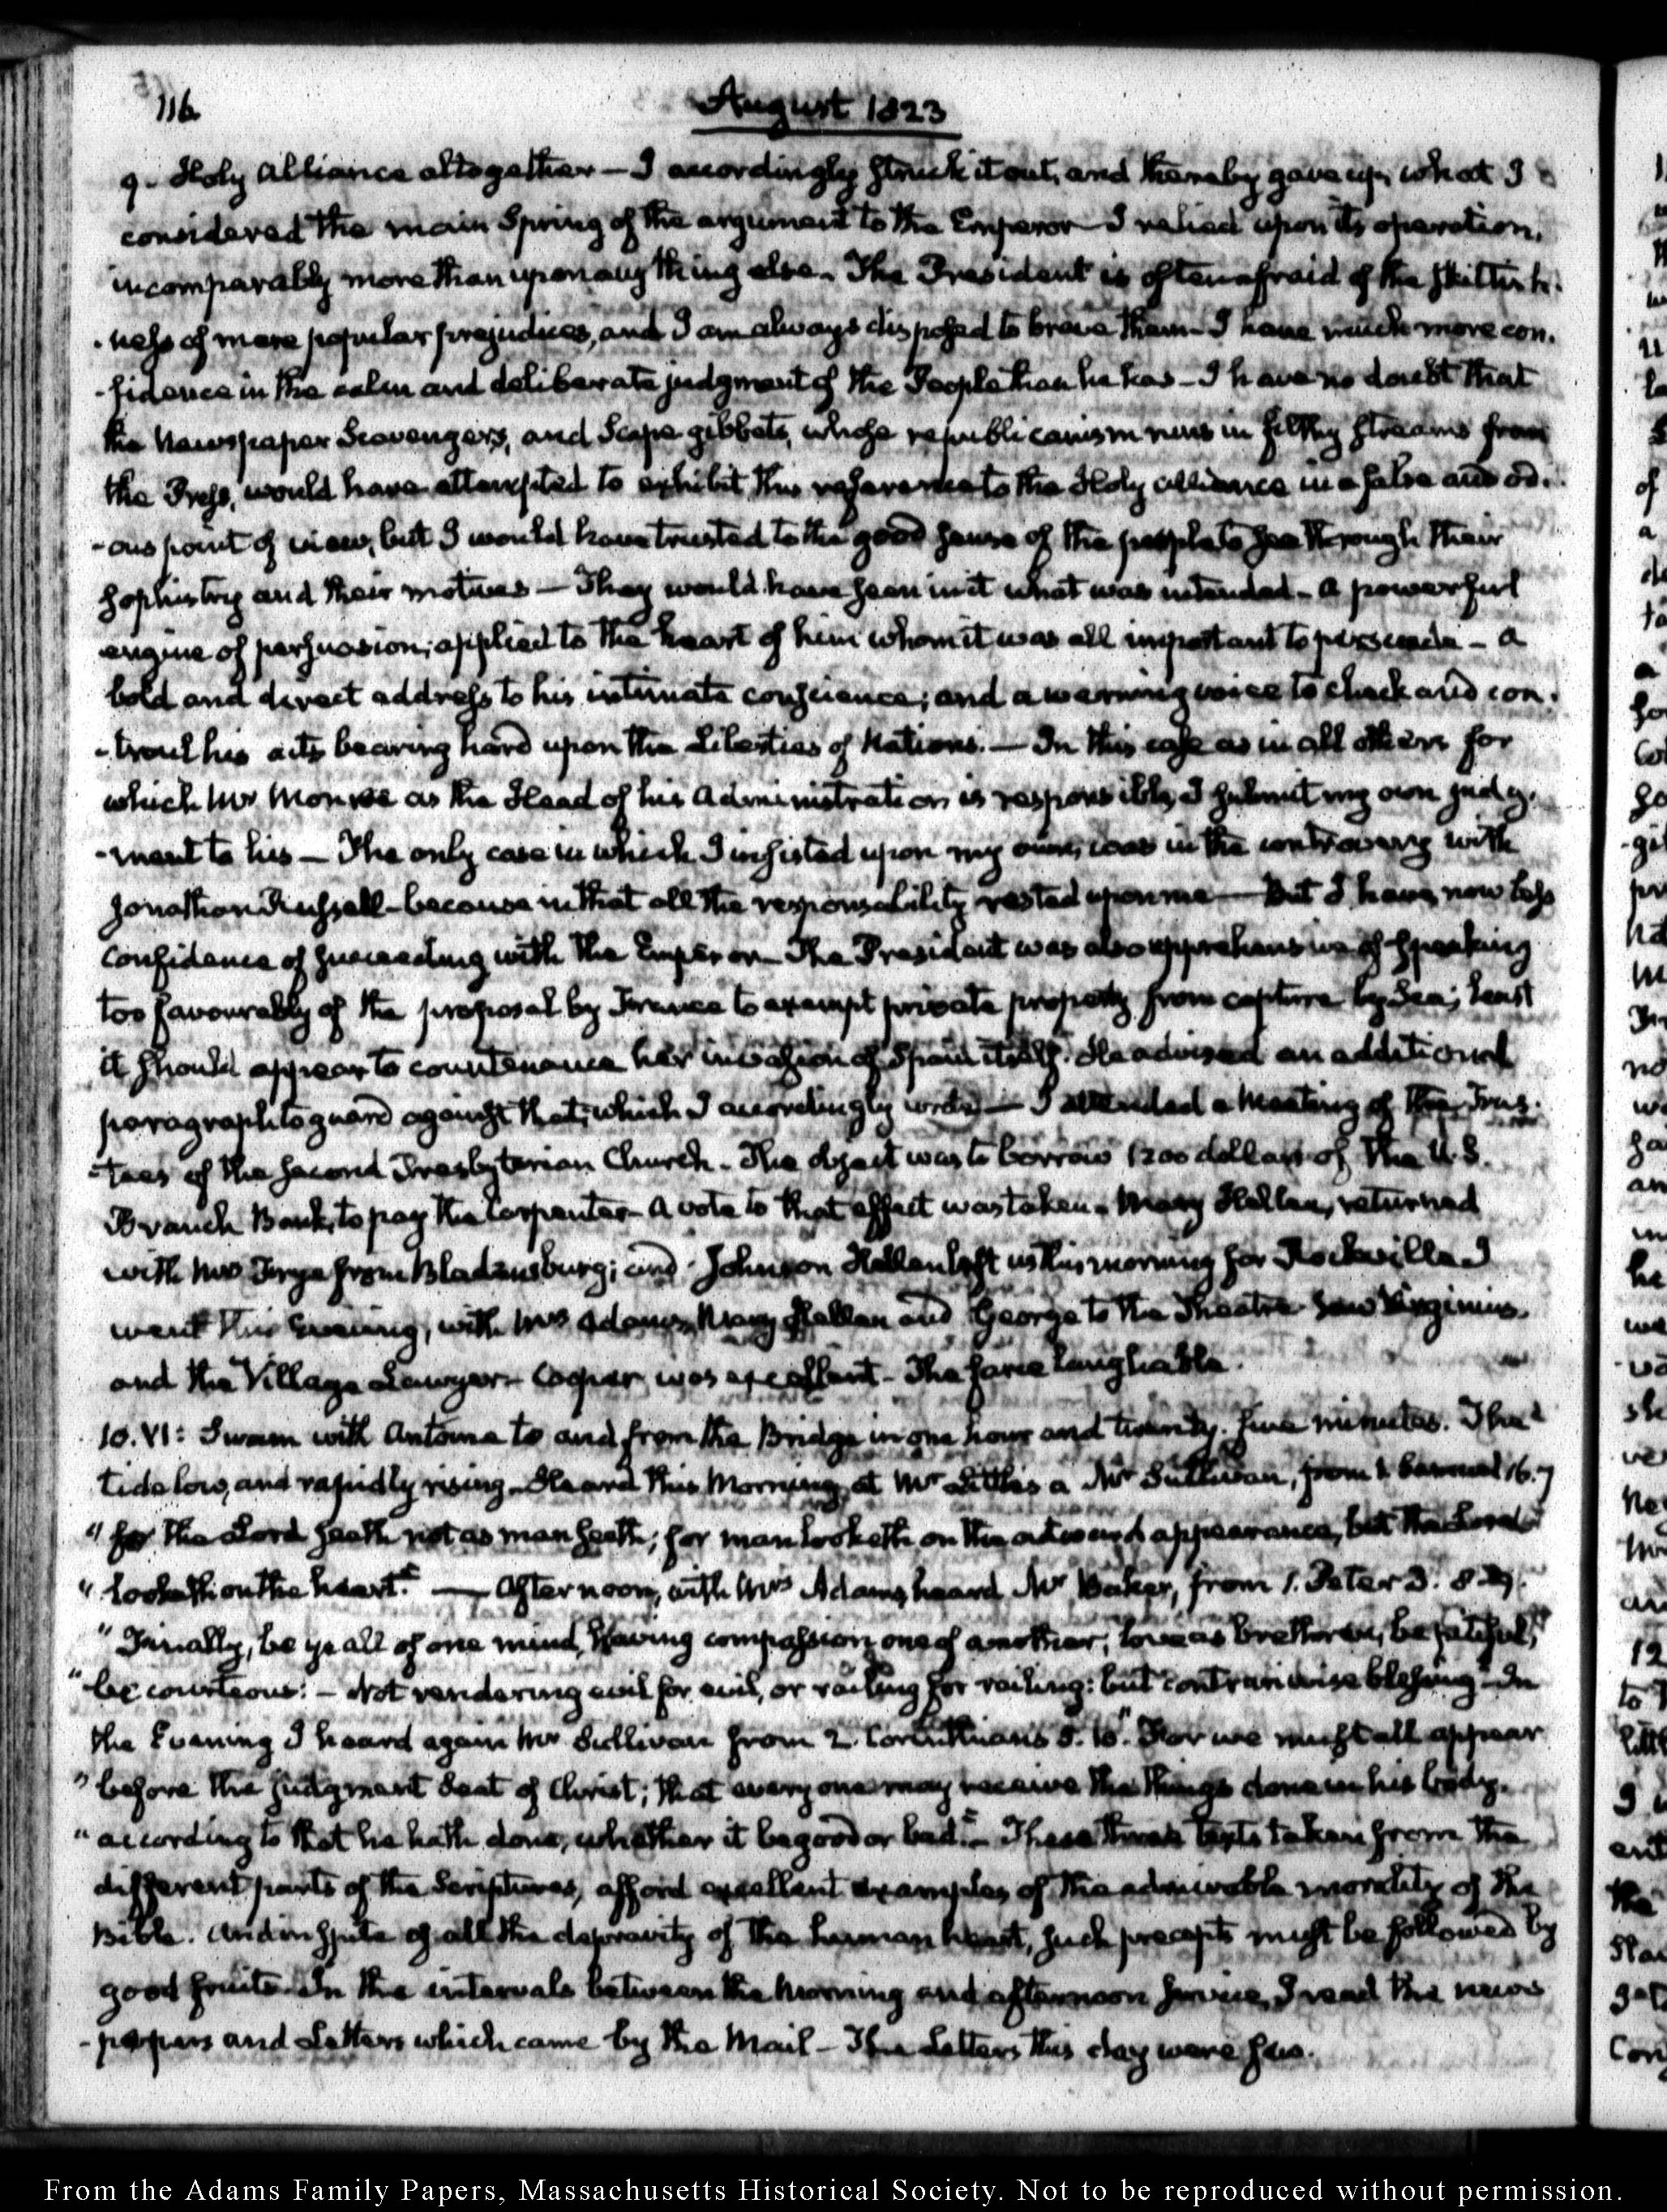 116
August 1823
9. Holy Alliance altogether — I accordingly struck it out, and thereby gave up, what I
considered the main Spring of the argument to the Emperor — I relied upon its operation,
incomparably more than upon any thing else. The President is often afraid of the skittish-
-ness of mere popular prejudices, and I am always disposed to brave them — I have much more con-
-fidence in the calm and deliberate judgment of the People than he has — I have no doubt that
the Newspaper Scavengers, and Scape gibbets, whose republicanism runs in filthy streams from
the Press, would have attempted to exhibit this reference to the Holy alliance in a false and odi-
-ous point of view, but I would have trusted to the good sense of the people to see through their
sophistry and their motives — They would have seen in it what was intended — a powerful
engine of persuasion, applied to the heart of him whom it was all important to persuade — a
bold and direct address to his intimate conscience; and a warning voice to check and con-
-troul his acts bearing hard upon the Liberties of Nations. — In this case as in all others for
which Mr Monroe as the Head of his Administration is responsible, I submit my own judg-
-ment to his — The only case in which I insisted upon my own, was in the controversy with
Jonathan Russell — because in that all the responsibility rested upon me — But I have now less
confidence of succeeding with the Emperor — The President was also apprehensive of speaking
too favourably of the proposal by France to exempt private property from capture by Sea; least
it should appear to countenance her invasion of Spain itself. He advised an additional
paragraph to guard against that, which I accordingly wrote — I attended a Meeting of the Trus-
-tees of the second Presbyterian Church — The object was to borrow 1200 dollars of the U.S.
Branch Bank, to pay the Carpenter — A vote to that effect was taken. Mary Hellen, returned
with Mrs Frye from Bladensburg; and Johnson Hellen left us this morning for Rockville — I
went this Evening, with Mrs Adams, Mary Hellen and George to the Theatre — Saw Virginius
and the Village Lawyer — Cooper was excellent — The farce laughable.
10. VI: Swam with Antoine to and from the Bridge in one hour and twenty-five minutes. The
tide low, and rapidly rising — Heard this Morning at Mr Little's a Mr Sullivan, from 1 Samuel 16.7
"for the Lord seeth not as man seeth; for man looketh on the outward appearance, but the Lord
"looketh on the heart." — Afternoon, with Mrs Adams, heard Mr Baker, from 1. Peter 3. 8.9.
"Finally, be ye all of one mind, having compassion one of another; love as brethren, be pitiful,
"be courteous: — Not rendering evil for evil, or railing for railing: but contrariwise blessing" — In
the Evening I heard again Mr Sullivan from 2 Corinthians 5.10. "For we must all appear
"before the judgment Seat of Christ; that every one may receive the things done in his body,
"according to that he hath done, whether it be good or bad." — These three texts taken from the
different parts of the Scriptures, afford excellent examples of the admirable morality of the
Bible. And in spite of all the depravity of the human heart, such precepts must be followed by
good fruits — In the intervals between the Morning and afternoon service, I read the news
-papers and Letters which came by the Mail — The Letters this day were few.
From the Adams Family Papers, Massachusetts Historical Society. Not to be reproduced without permission.